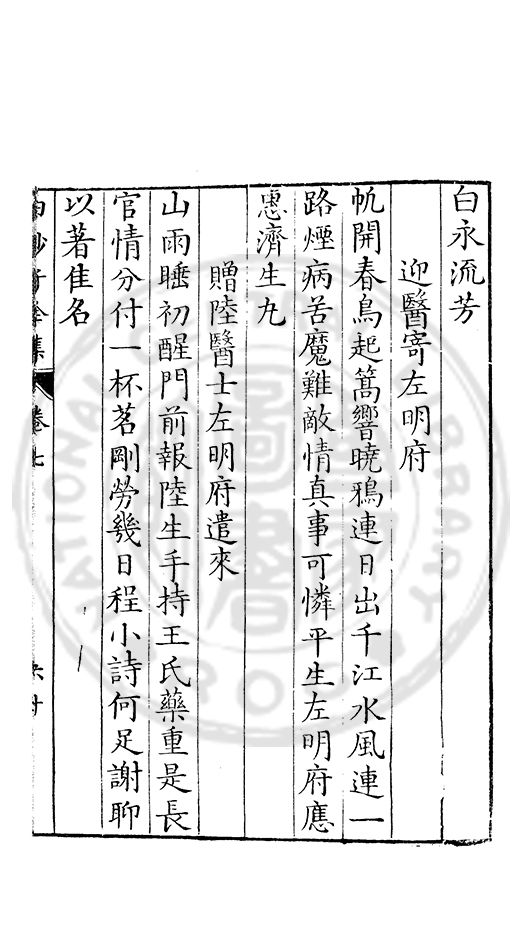 白永流芳
迎醫寄左明府
帆開春鳥起篙響曉鴉連日出千江水風連一
路煙病苦魔難敵情真事可憐平生左明府應
惠濟生丸
贈陸醫士左明府遣來
山雨睡初醒門前報陸生手持王氏藥重是長
官情分付一杯茗剛勞幾日程小詩何足謝聊
以著隹名
卷七